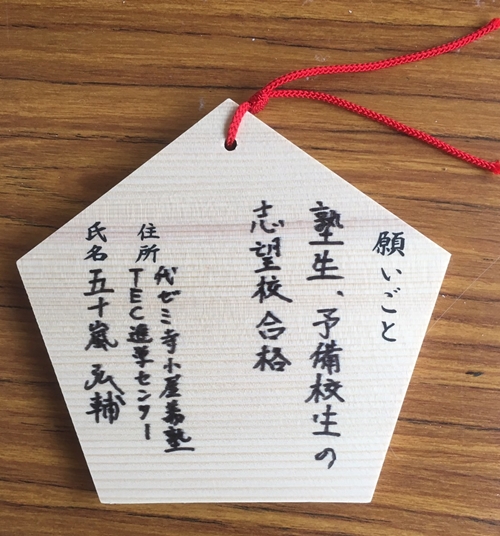 願いごと
塾生、予備校生の
志望校合格
住所
代ゼミ寺小屋義塾
TEC進学センター
氏名 五十嵐弘輔